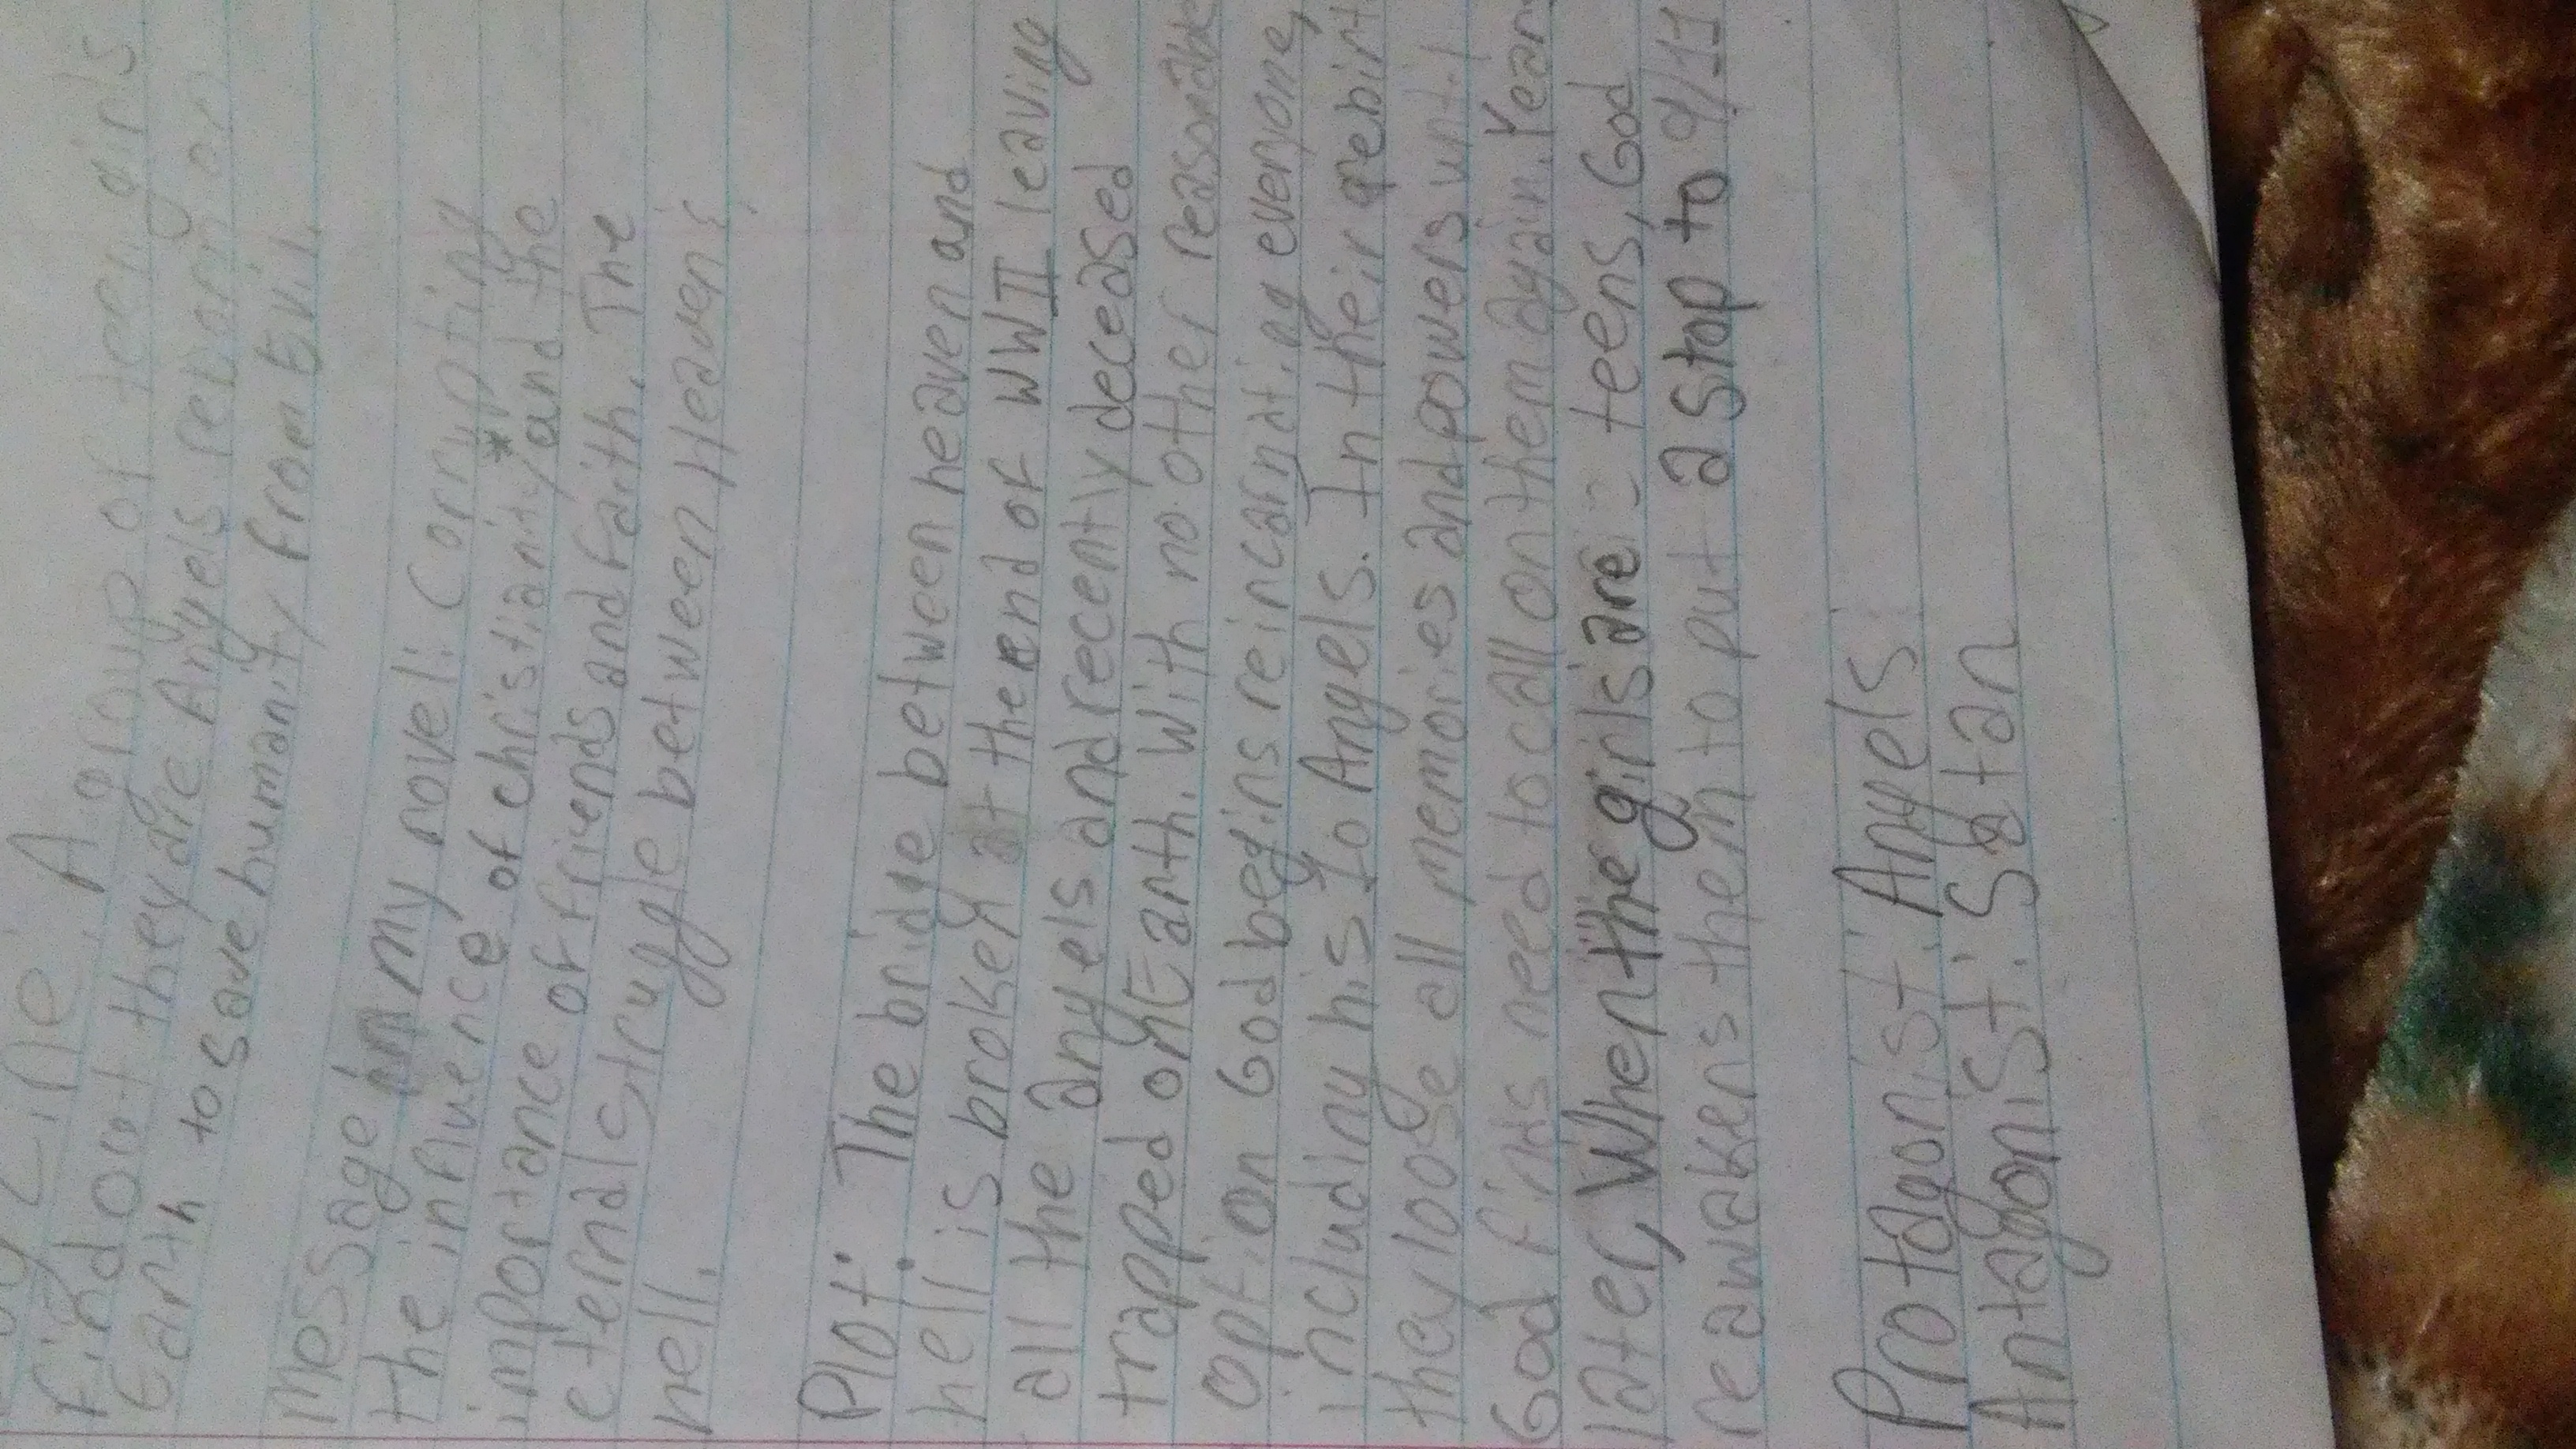 Line: A group of teen girls
find out they are Angels reborn on
Earth to save humanity from Evil.
Message in my novel: Corrupting
the influence of christianity* and the
importance of friends and faith. The
eternal struggle between Heaven &
hell.
Plot: The bridge between heaven and
hell is broken at the end of WWII leaving
all the angels and recently deceased
trapped on Earth. With no other reasonable
option God begins reincarnating everyone,
including his 10 Angels. In their rebirth
they loose all memories and powers until
God finds need to call on them again. Years
later, When the girls are teens, God
reawakens them to put a stop to 9/11
Protagonist: Angels
Antagonist: Satan